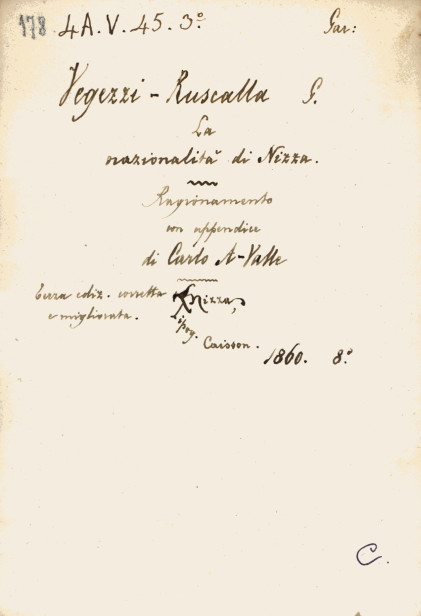 178 4A.V.45.3º Gar:
Vegezzi-Ruscalla G.
La
nazionalità di Nizza.
Ragionamento
con appendice
di Carlo A-Valle
Terza ediz. corretta
e migliorata.
Nizza,
tipog.
Caisson.
1860. 8º
C.